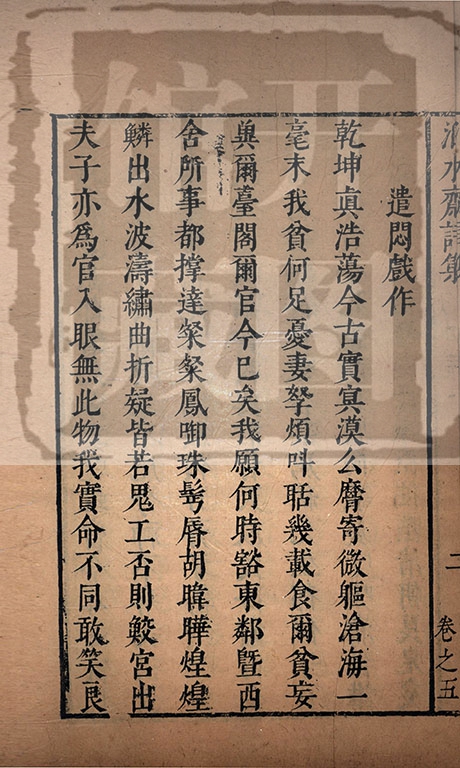 水齋詩集
二
卷之五
遣悶戲作
乾坤眞浩蕩今古實寞漠么麿寄微軀滄海一
毫末我貧何足憂妻孥煩呌聒幾載食爾貧妄
兾爾臺閣爾官今巳矣我願何時豁東鄰曁西
舍所事都撑達粲粲鳳啣珠髩脣胡暐曄煌煌
鱗出水波濤繡曲折疑皆若鬼工否則鮫宮出
夫子亦爲官入眼無此物我實命不同敢笑艮
开图
馆藏